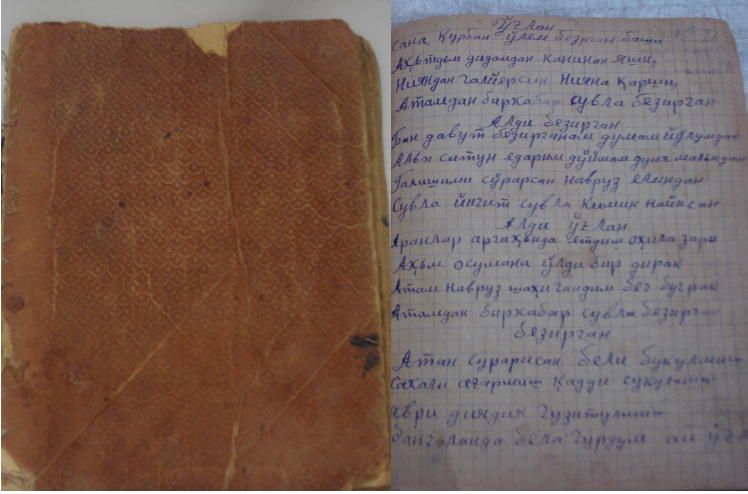 Ўғлан
сана Қурбан ўлем безрган баши
Ахътдъм дидамдан канинан яши,
Нияндан галйерсин нична қарши,
Атамдан бирхабар сувла безирган
Алди безирган
Бан давут безирганам думам йўлумдан
Алъп сатун едарим дўймам дуня малъндан
Галишими сўрарсан Навруз елиндан
Сувла йигит сувла кимин найисан
Алди ўғлан
Аранлар аргахъnda етдим охила зари
Ахъм осумана ўлди бир дирак
Атам Навруз шахи гандим беч буграк
Атамдан бирхабар сувла безирган
безирган
Атан сурарисан бели букулмиш
Сакали ағармиш қадди сукулмиш
гузитулмиш
бела гурдум ай